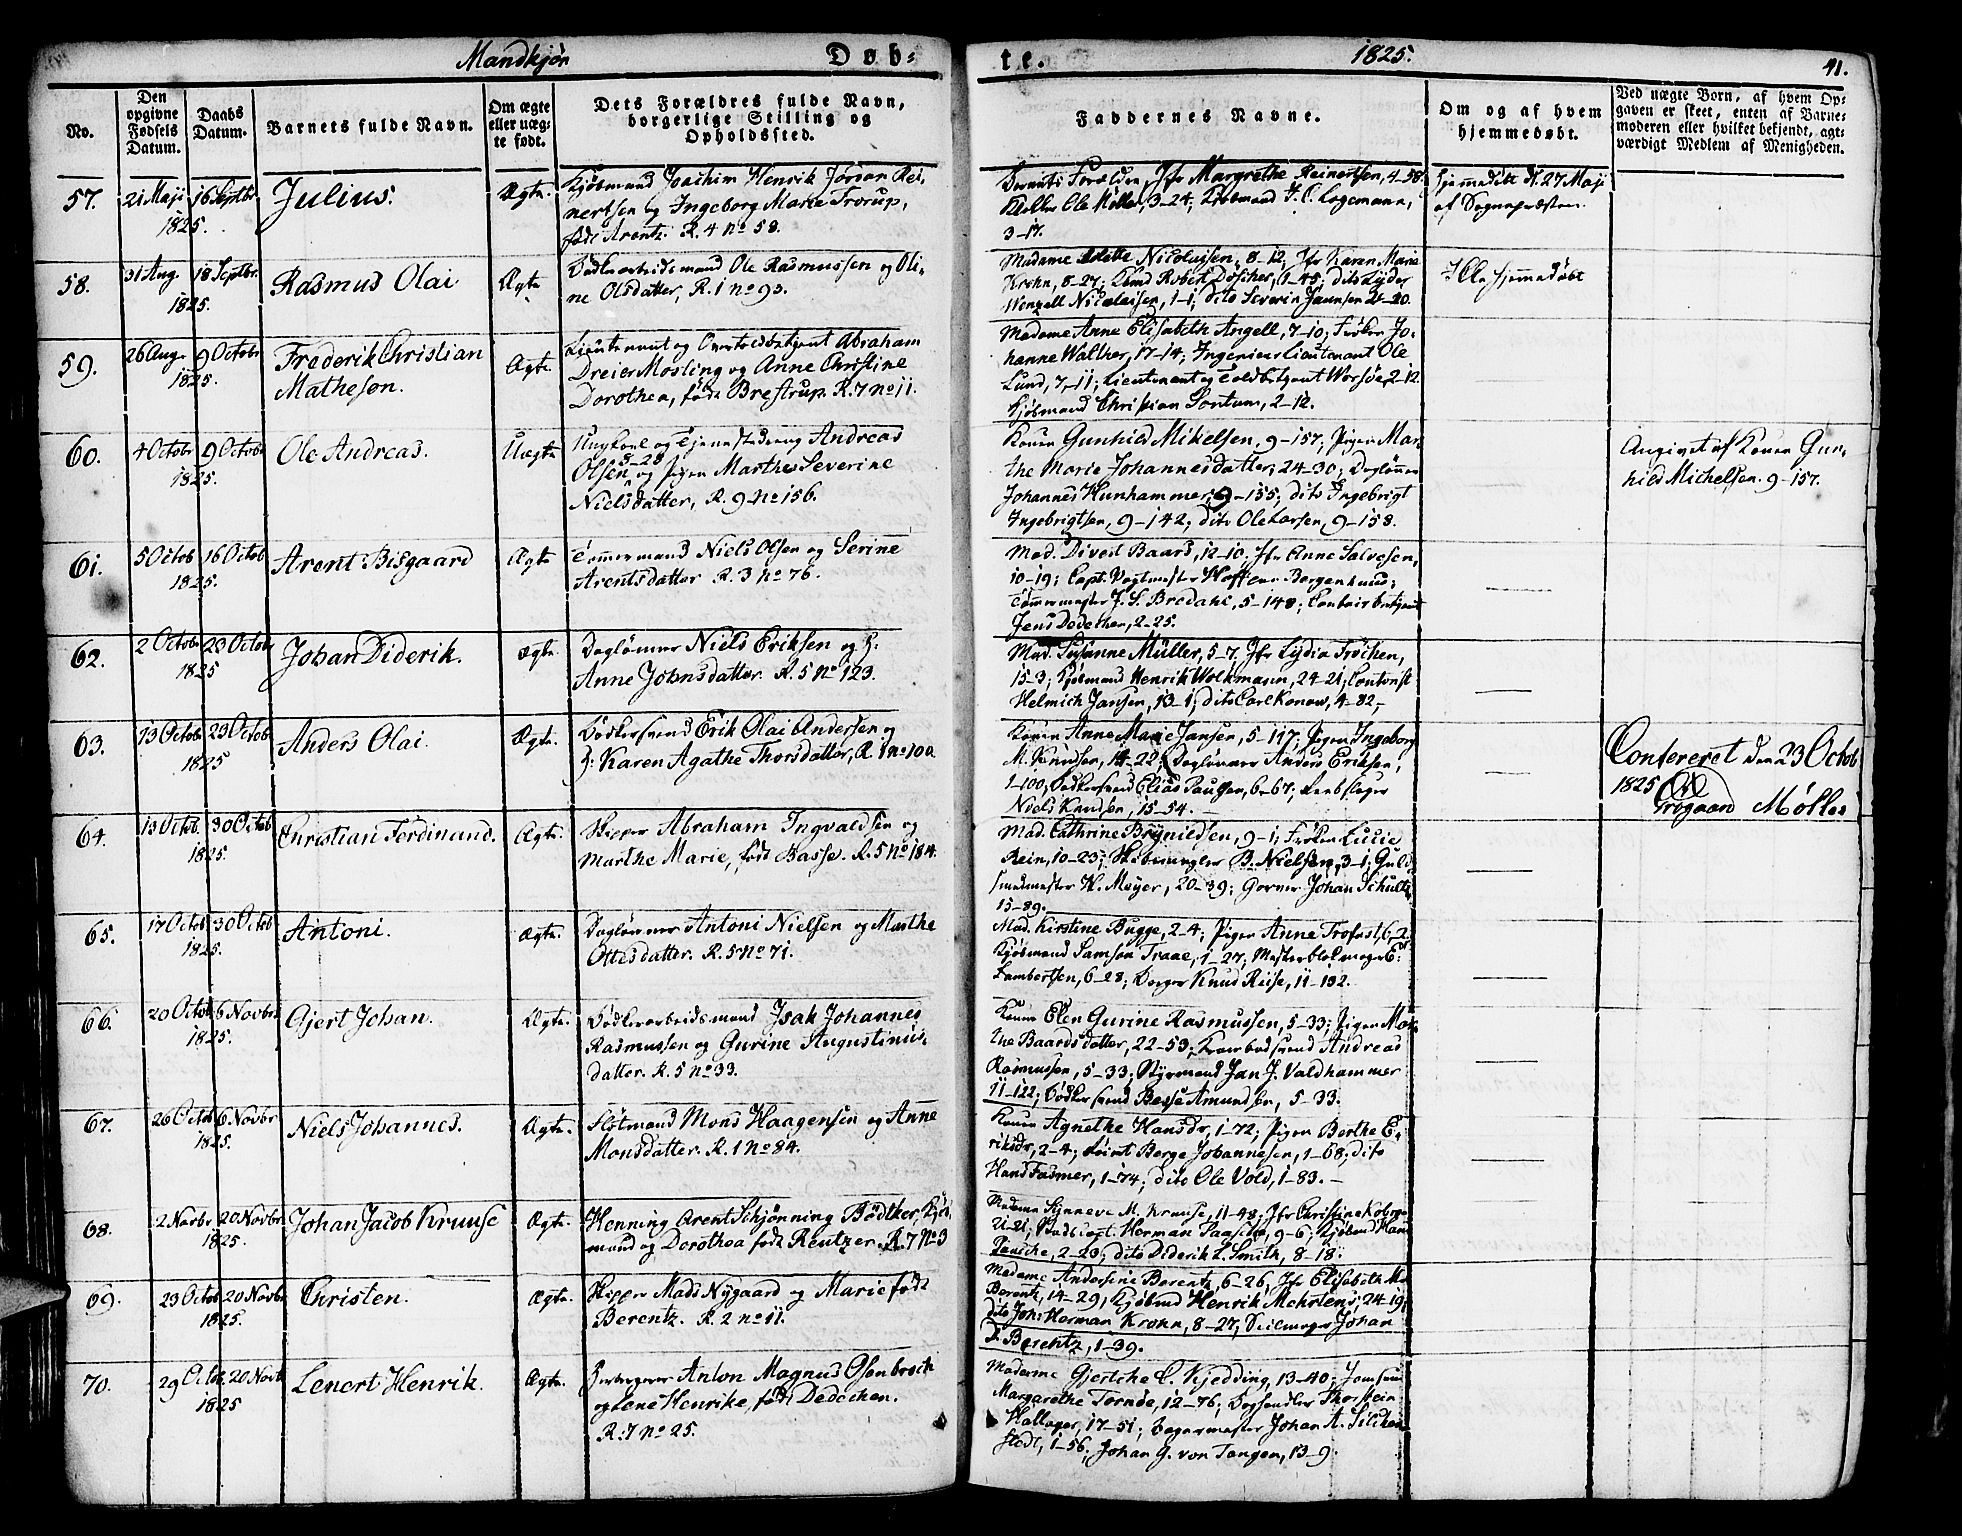 Mandkjøn Døb-
No.
Den opgivne Fødsels Datum.
Daabs Datum.
Barnets fulde Navn.
Om ægte eller uægte født.
Dets Forældres fulde Navn, borgerlige Stilling og Opholdssted.
57. 21 Maji 16 Septbr 1825. Julius. Ægte.
Kjøbmand Joachim Henrik Jørgen Rei-
nertsen og Ingeborg Marie Trorup,
født Arentz. R. 4 No 58.
58. 31 Aug. 18 Septbr. 1825. Rasmus Olai Ægte
Bødkerarbeidsmand Ole Rasmussen og Oli-
ne Olsdatter, R. 1 No 93.
59. 26 Aug. 9 Octobr 1825. Frederik Christian
Mathesen. Ægte.
Lieutenant og Overtoldbetjent Abraham
Dreier Mosling og Anne Christine
Dorothea, født Brestrup. R. 7 No 11.
60. 4 Octobr 9 Octobr 1825. Ole Andreas. Uægte
Ungkarl og Tjenestedreng Andreas
Olsen 8-28 og Pigen Marthe Severine
Nielsdatter, R. 9 No 156.
61. 5 Octob 16 Octob 1825. Arent Bisgaard Ægte
Tømmermand Niels Olsen og Serine
Arentsdatter R. 3 No 76.
62. 2 Octobr 23 Octobr 1825 Johan Diderik. ægte.
Daglønner Niels Eriksen og H:
Anne Johnsdatter. R. 5 No 123.
63. 13 Octob 23 Octob 1825 Anders Olai. Ægte.
Bødkersvend Erik Olai Andersen og
H: Karen Agathe Thorsdatter, R. 1 No 100.
64. 13 Octob. 30 Octob 1825. Christian Ferdinand. Ægte.
Skipper Abraham Ingvaldsen og
Marthe Marie, født Basse. R. 5 No 184.
65. 17 Octob 30 Octob 1825. Antoni. ægte.
Daglønner Antoni Nielsen og Marthe
Ottesdatter. R. 5 No 71.
66. 20 Octob 6 Novbr 1825. Gjert Johan. Ægte.
Bødkerarbeidsmand Isak Johannes
Rasmussen og Gurine Augustinus-
datter. R. 5 No 33.
67. 26 Octob 6 Novbr 1825. Niels Johannes. Ægte.
Fløtmand Mons Haagensen og Anne
Monsdatter. R. 1 No 84.
68. 2 Novbr 20 Novbr 1825. Johan Jacob Kruuse Ægte.
Henning Arent Schjønning Bødtker, Kjøb-
mand og Dorothea født Reutzer. R. 7 No 3
69. 23 Octob 20 Novbr 1825. Christen. Ægte.
Skipper Mads Nygaard og Marie født
Berentz. R. 2 No 11.
70. 29 Octob 20 Novb 1825 Lenert Henrik. Ægte.
Anton Magnus Osenbroch
og Lene Henrike, født Dedechen.
R. 7 No 25.
te. 1825. 41.
Faddernes Navne.
Om og af hvem hjemmedøbt.
Ved uægte Born, af hvem Op-
gaven er skeet, enten af Barne-
moderen eller hvilket bekjendt, agt-
værdigt Medlem af Menigheden.
Barnets Forældre, Jfr Margrethe Reinertsen, 4-58
Ole Møller, 3-24; Kjøbmand J. C. Logemann,
3-17.
Hjemmedøbt d. 27 Maji
af Sognepræsten.
Madame Adelle Nicolaisen, 8-12, Jfr Karen Marie
Krohn, 8-27; Kbmd Robert Döscher, 1-45; dito Lyder
Wenzell Nicolaisen, 1-1; dito Severin Jaunsen 21-20.
Ikke hjemmedøbt
Madame Anne Elisabeth Angell, 7-10; Frøken Jo-
hanne Walther, 17-14; Ingenieur Lieutenant Ole
Lund, 7-11; Lieutenant og Toldbetjent Worsøe, 2-12
Kjøbmand Christian Sontum, 2-12.
Konen Gunhild Mikelsen, 9-157; Pigen Mar-
the Marie Johannesdatter, 24-30; Dagløner
Johannes Hunhammer, 9-155; dito Ingebrigt
Ingebrigtsen, 9-142; dito Ole Larsen, 9-158.
Angivet af Konen Gun-
hild Michelsen. 9-157.
Mad. Divert Baars, 12-10; Jfr Anne Salvesen,
10-19; Capt. Vagtmester Hoff paa Bergenhuus;
Tømmermester J. S. Bredahl, 5-148; Contoirbetjent
Jens Dedechen, 2-25.
Mad. Susanne Müller, 5-7. Jfr Lydia Frøchen,
15-3; Kjøbmand Henrik Wolkmann, 24-21; Contorist
Helmich Jansen, 13-1; dito Carl Konow, 4-82-
Konen Anne Marie Jansen, 5-117; Pigen Ingeborg
M. Knudsen, 14-22; Dagløner Anders Eriksen,
1-100; Bødkersvend Elias Paulsen, 6-67; Reebslager
Niels Knudsen, 15-54.
Confereret den 23 Octob
1825
Møller
Mad. Cathrine Brynildsen, 9-1; Frøken Lucie
Rein, 10-23; Skibsmægler B. Nielsen, 3-1; Guld-
smedmester H. Meyer, 20-39; Garver Johan Schultz
15-89.
Mad. Kirstine Bugge, 2-4; Pigen Anne Trofast, 6-2
Kjøbmand Samson Traae, 1-27; Mesterblokmager E:
Lambertsen, 6-28; Borger Knud Riise, 11-192.
Konen Elen Gurine Rasmussen, 5-33; Pigen Mar-
the Baardsdatter, 22-53; Andreas
Rasmussen, 5-33; Styrmand Jan J. Valdhammer
11-122, Bødkersvend Besse Amundsen, 5-33.
Konen Agnethe Hansdr, 1-72; Pigen Berthe E-
riksdr, 2-4; Berge Johannesen, 1-68; dito
Hans Fasmer, 1-74; dito Ole Vold, 1-83.-
Madame Synneve M. Kruuse, 11-48, Jfr Christine Koberg
21-21; Herman Paasche, 9-6; Kjøbmd Hans
Paasche, 2-23; dito Diderik L. Smith, 8-18;
Madame Andersine Berentz, 6-26, Jfr Elisabeth M.
Berentz, 14-29, Kjøbmd Henrik Mehrtens, 24-19;
dito Joh: Herman Krohn, 8-27, Seilmager Johan
D. Berentz, 1-39.
Madame Gjertche C. Kjedding, 13-40; Jomfrue
Margarethe Tornöe, 12-76; Thorstein
Hallager, 17-51; Bagermester Johan A. Silchen-
stedt, 1-56; Johan G. von Tangen, 13-9